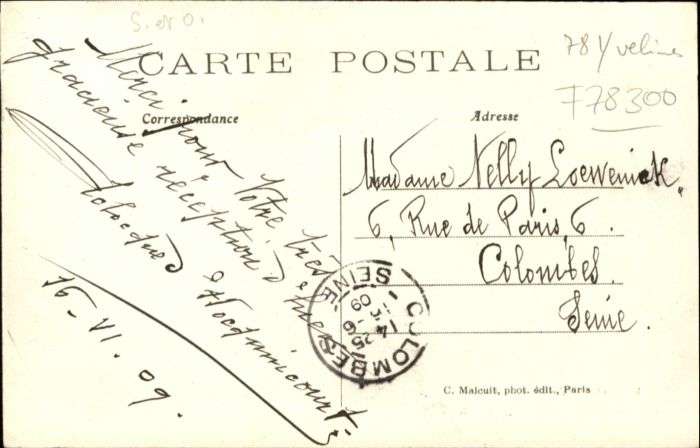 S. et O.
78 Yvelines
F78300
CARTE POSTALE
Correspondance
Adresse
Merci pour Votre très
gracieuse réception d'hier
16-VI. 09.
Madame Nelly Loewenick.
6, Rue de Paris, 6.
Colombes.
Seine.
COLOMBES
SEINE
14 25
6
09
C. Malcuit, phot. édit., Paris